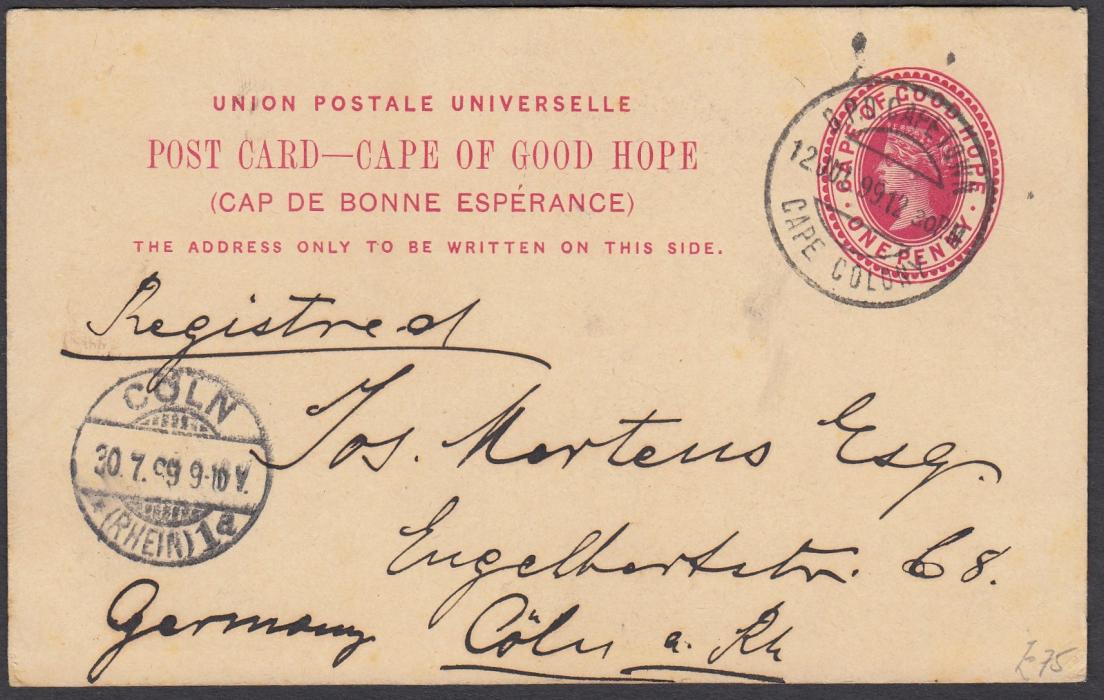 UNION POSTALE UNIVERSELLE
POST CARD—CAPE OF GOOD HOPE
(CAP DE BONNE ESPÉRANCE)
THE ADDRESS ONLY TO BE WRITTEN ON THIS SIDE.
CAPE OF GOOD HOPE
ONE PENNY
G.P.O. CAPE TOWN
12 JUL 99 12 30PM
CAPE COLONY
Registred
CÖLN
30.7.99 9-10V.
(RHEIN) 1a
Jos. Mertens Esq.
Engelbertstr. 68.
Germany Cöln a. Rh
£75